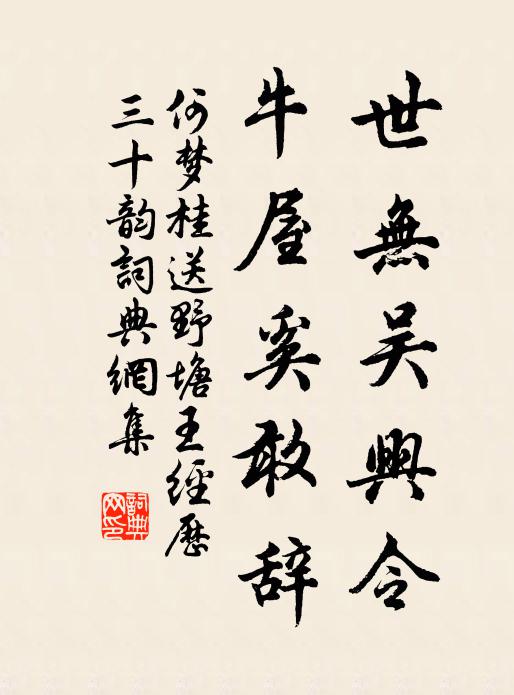 世無吴興令
牛屋奚敢辞
何梦桂送野塘王經歷
三十韵詞典網集
詞典網印